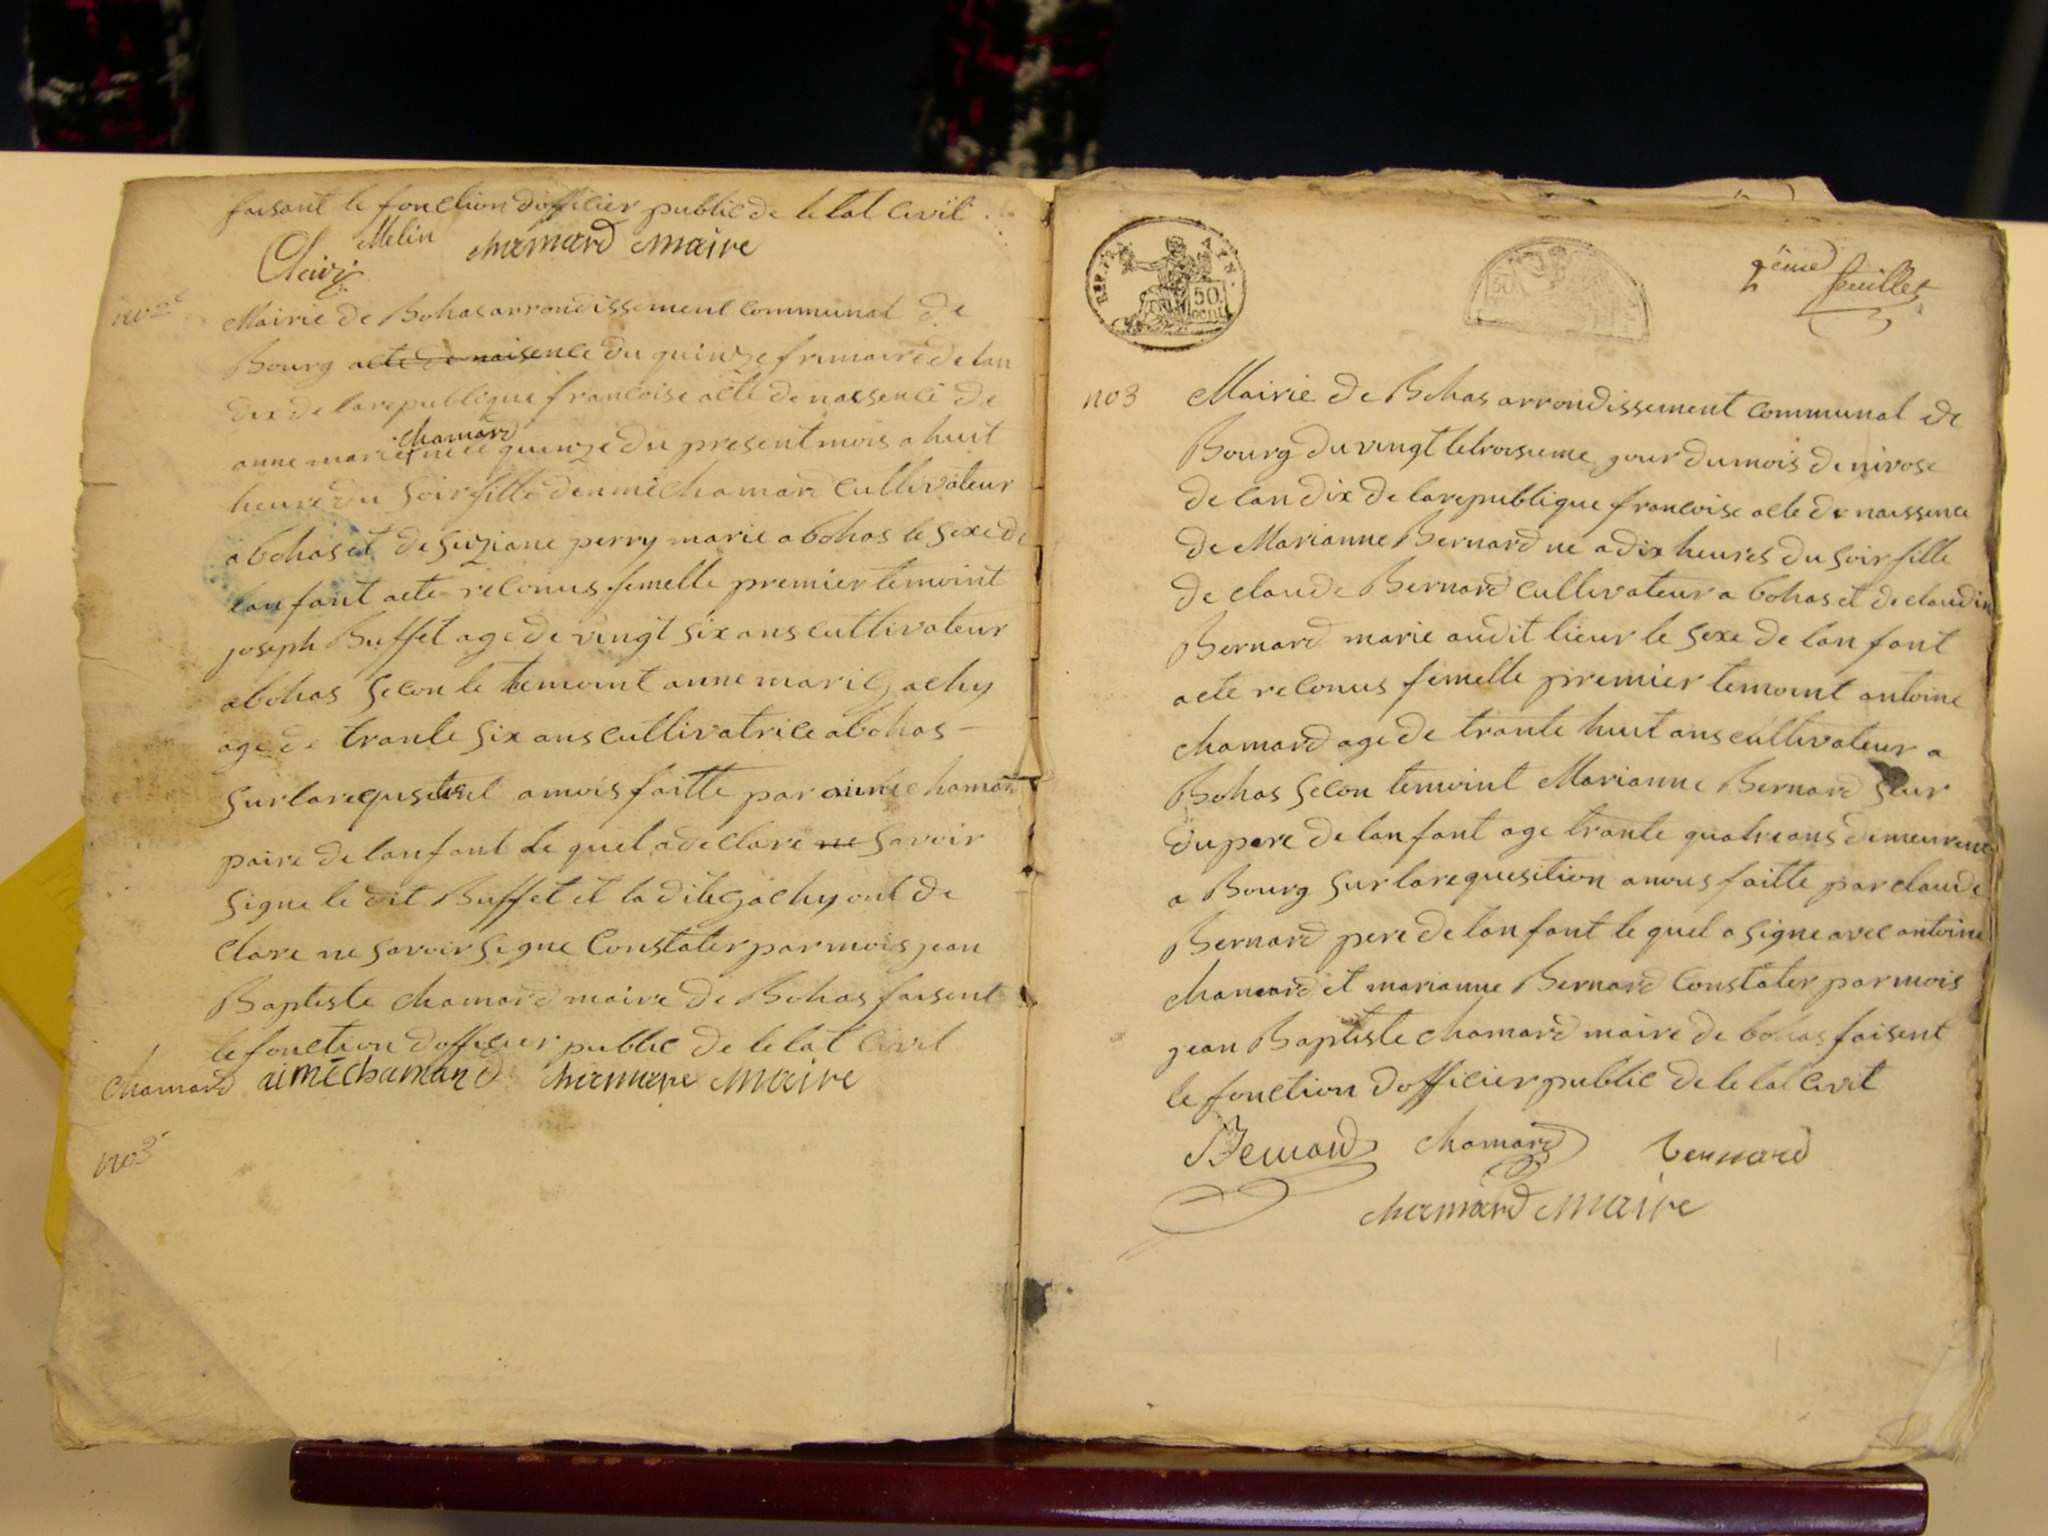 faisant le fonction dofficier public de letat civil
Melin chamard maire
Clerc
no 2
Mairie de Bohas arrondissement communal de
Bourg acte de naisence du quinze frimaire de lan
dix de larepublique francoise acte de naissence de
chamard
anne marie nee quinze du present mois a huit
heure du soir fille demé chamard cultivateur
a bohas et de suziane perry marie a bohas le sexe de
lanfant acte reconus femelle premier temoint
joseph Buffet age de vingt six ans cultivateur
abohas secon le temoint anne marie Gachy
age de trante six ans cultivatrice abohas
sur larequisition a mois faitte par aimé chamard
paire de lanfant le quel a declare ne savoir
signe le dit Buffet et la dite gachy ont de
clare ne savoir signe Constater par mois jean
Baptiste chamard maire de Bohas faisent
le fonction dofficier public de letat civil
chamard aimé chamard chamard maire
no 3
REP. FRA 50 cent
2eme feuillet
no 3
Mairie de Bohas arrondissement communal de
Bourg du vingt letroisieme jour du mois de nivose
de lan dix de larepublique francoise acte de naissence
de Marianne Bernard ne a dix heures du soir fille
de claude Bernard cultivateur a bohas et de claudin
Bernard marie audit lieur le sexe de lanfant
acte reconus femelle premier temoint antoine
chamard age de trante huit ans cultivateur a
Bohas secon temoint Marianne Bernard seur
du pere de lanfant age trante quatre ans demeurent
a Bourg sur larequesition anous faitte par claude
Bernard pere de lanfant le quel a signe avec antoine
chamard et marianne Bernard Constater par mois
jean Baptiste chamard maire de bohas faisent
le fonction dofficier public de letat civit
Bernard chamard bernard
chamard maire